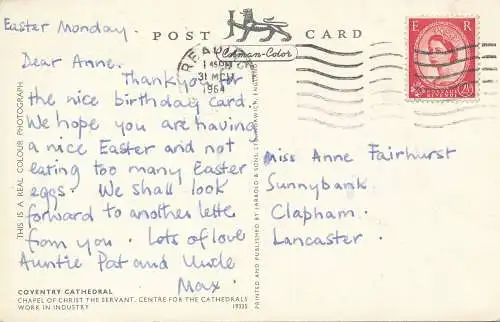 Easter Monday.
POST CARD
Cotman-Color
READING
1 45 PM
31 MCH
1964
E R
Dear Anne.
Thankyou for
the nice birthday card.
We hope you are having
a nice Easter and not
eating too many Easter
eggs. We shall look
forward to another letter
from you. Lots of love
Auntie Pat and Uncle
Max.
Miss Anne Fairhurst
Sunnybank.
Clapham.
Lancaster.
THIS IS A REAL COLOUR PHOTOGRAPH
PRINTED AND PUBLISHED BY JARROLD & SONS LTD, NORWICH, ENGLAND
COVENTRY CATHEDRAL
CHAPEL OF CHRIST THE SERVANT. CENTRE FOR THE CATHEDRAL'S
WORK IN INDUSTRY